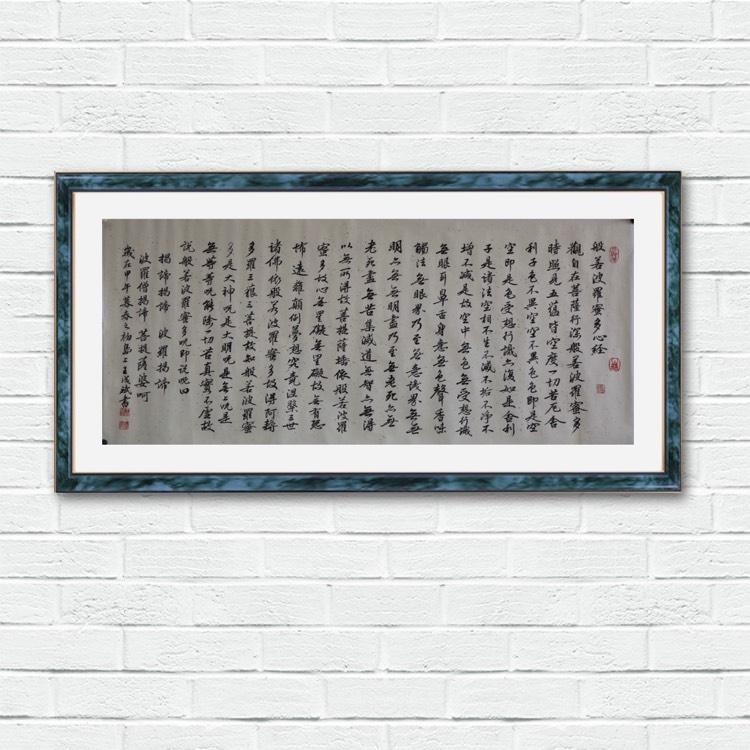 般若波羅蜜多心經
觀自在菩薩行深般若波羅蜜多
時照見五蘊皆空度一切苦厄舍
利子色不異空空不異色色即是空
空即是色受想行識亦復如是舍利
子是諸法空相不生不滅不垢不淨不
增不減是故空中無色無受想行識
無眼耳鼻舌身意無色聲香味
觸法無眼界乃至無意識界無無
明亦無無明盡乃至無老死亦無
老死盡無苦集滅道無智亦無得
以無所得故菩提薩埵依般若波羅
蜜多故心無罣礙無罣礙故無有恐
怖遠離顛倒夢想究竟涅槃三世
諸佛依般若波羅蜜多故得阿耨
多羅三藐三菩提故知般若波羅蜜
多是大神咒是大明咒是無上咒是
無等等咒能除一切苦真實不虛故
說般若波羅蜜多咒即說咒曰
揭諦揭諦 波羅揭諦
波羅僧揭諦 菩提薩婆呵
歲在甲午暮春之初島上王成書